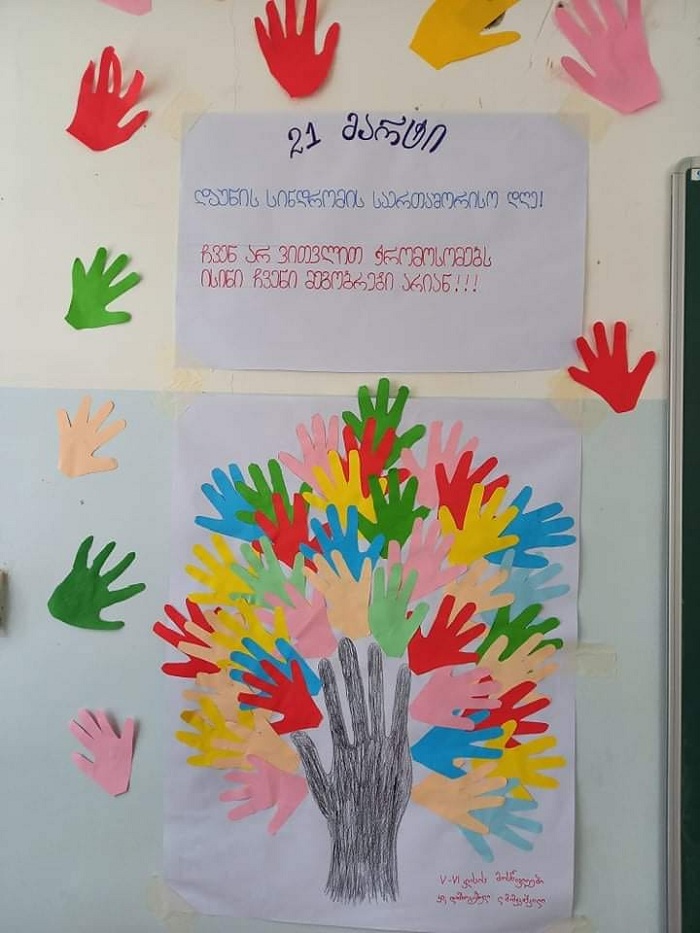 21 მარტი
დაუნის სინდრომის საერთაშორისო დღე!
ჩვენ არ ვითვლით ქრომოსომებს
ისინი ჩვენი მეგობრები არიან!!!
V-VI კლასის მოსწავლეები